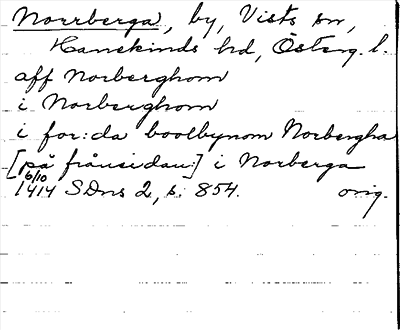 Norrberga, by, Vists sn,
Hanekinds hd, Österg. l.
aff Norberghom
i Norberghom
i for:da boolbynom Norbergha
[på frånsidan:] i Norberga
6/10
1414 SDns 2, s. 854. orig.